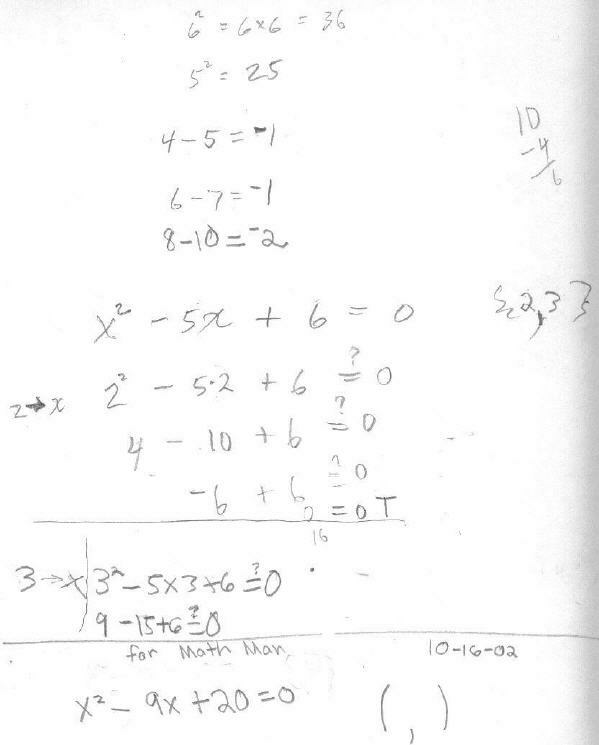 6² = 6×6 = 36
5² = 25
4 - 5 = -1
10
-4
6
6 - 7 = -1
8 - 10 = -2
x² - 5x + 6 = 0 {2,3}
2→x 2² - 5·2 + 6 ≟ 0
4 - 10 + 6 ≟ 0
-6 + 6 ≟ 0
0 = 0 T
16
3→x 3² - 5×3+6 ≟ 0
9 - 15+6 ≟ 0
for Math Man 10-16-02
x² - 9x + 20 = 0 ( , )